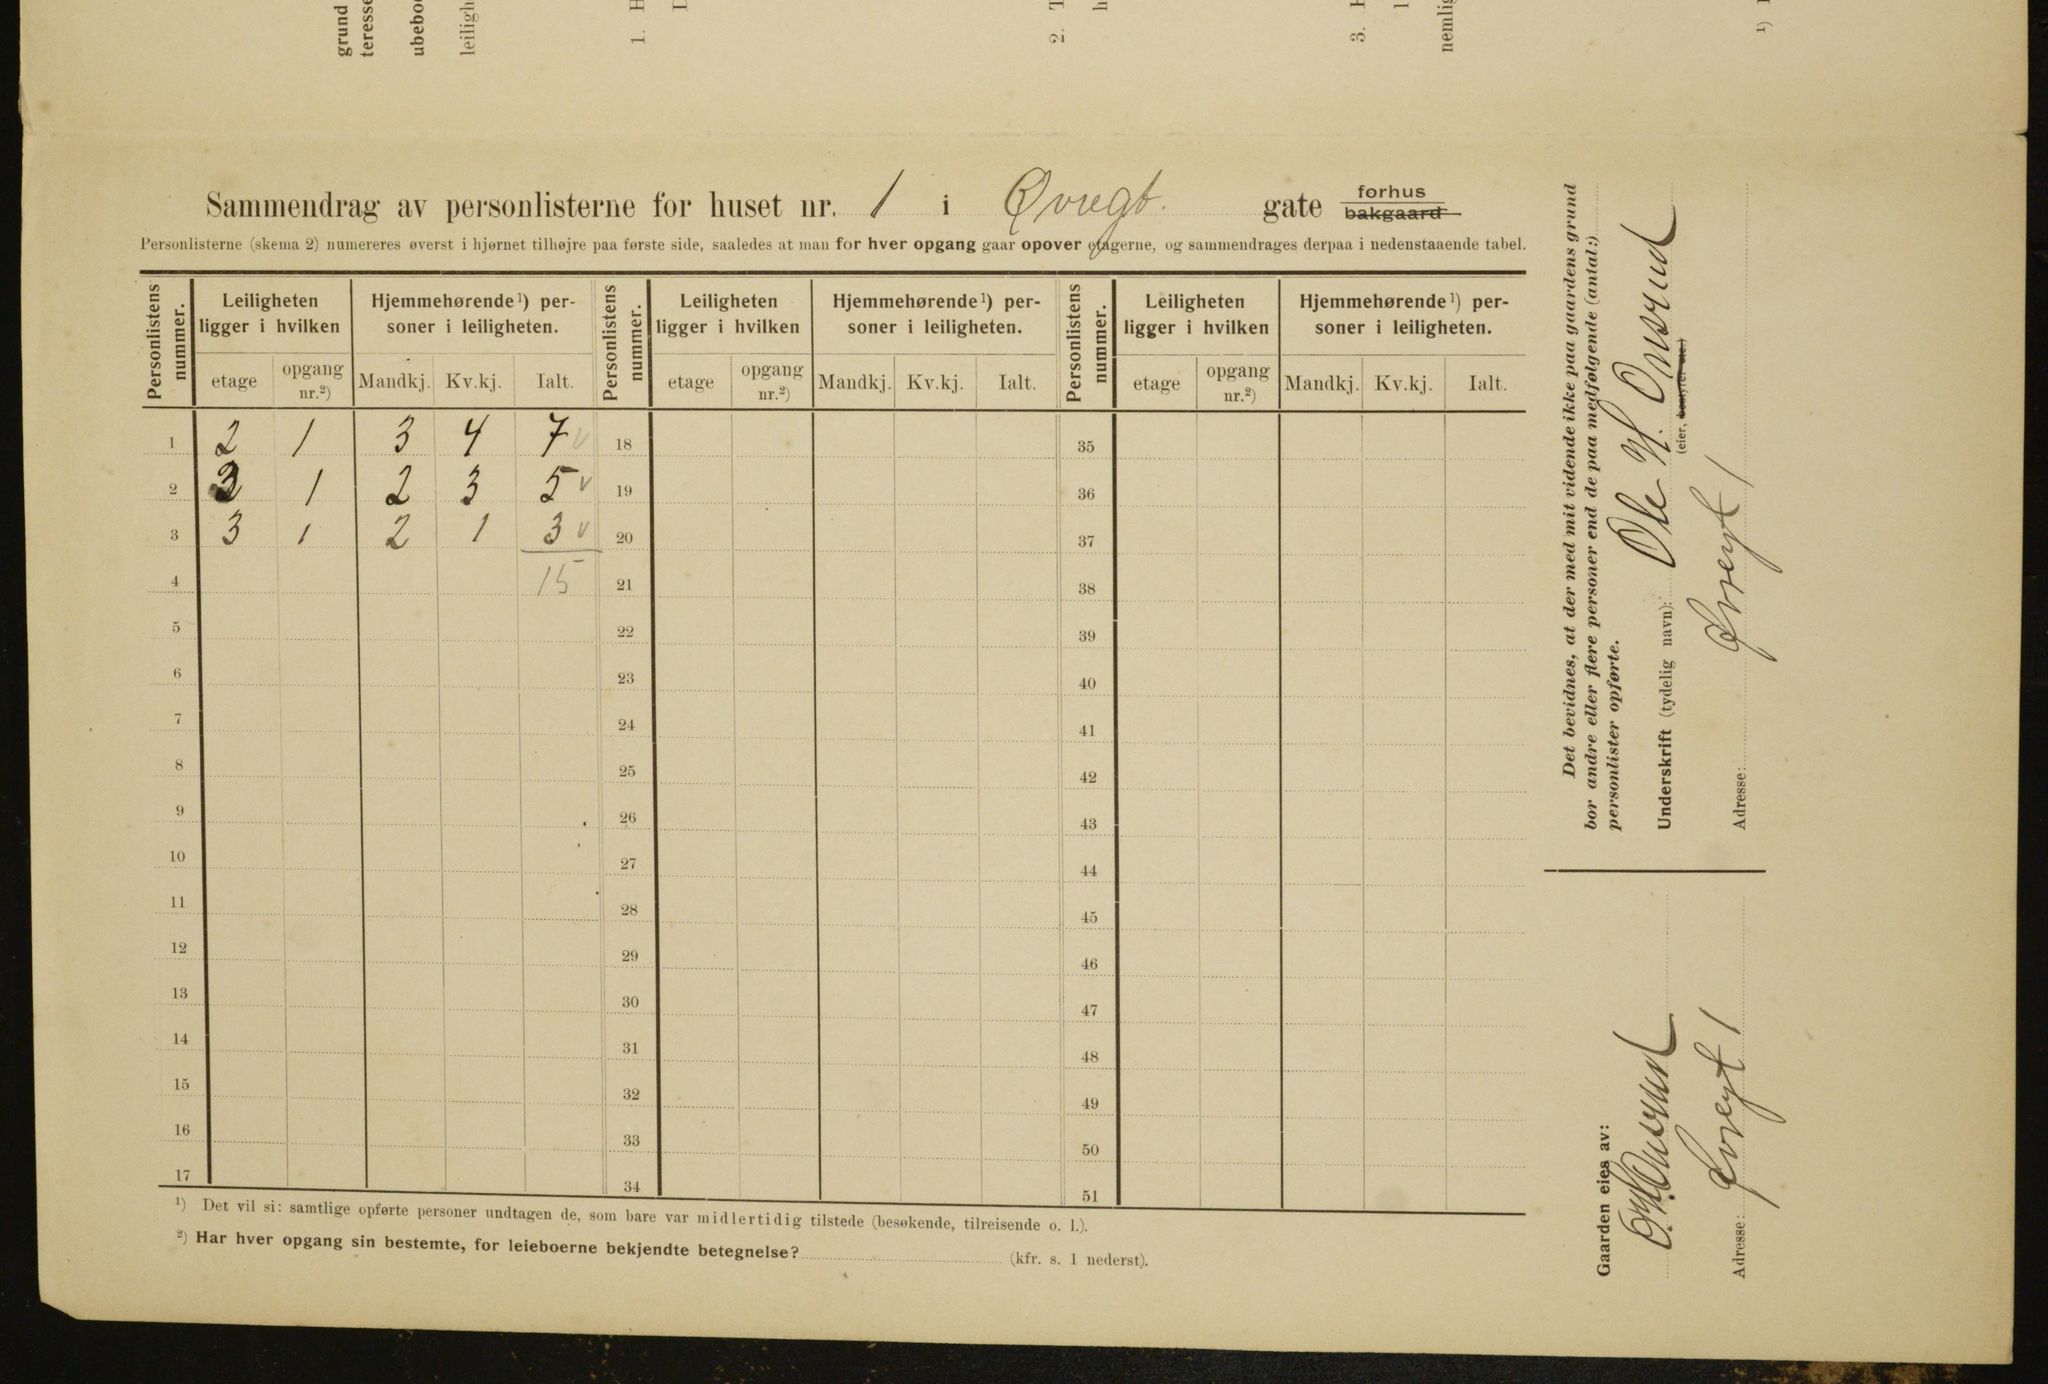 grund
teresse
ubeboe
leiligh
1. H
D
2. T
h
3. H
l
nemlig
¹) D
Sammendrag av personlisterne for huset nr. 1 i Øvregt. gate forhus bakgaard
Personlisterne (skema 2) numereres øverst i hjørnet tilhøjre paa første side, saaledes at man for hver opgang gaar opover etagerne, og sammendrages derpaa i nedenstaaende tabel.
Personlistens nummer. Leiligheten ligger i hvilken Hjemmehørende¹) personer i leiligheten. Personlistens nummer. Leiligheten ligger i hvilken Hjemmehørende¹) personer i leiligheten. Personlistens nummer. Leiligheten ligger i hvilken Hjemmehørende¹) personer i leiligheten.
etage opgang nr.²) Mandkj. Kv.kj. Ialt. etage opgang nr.²) Mandkj. Kv.kj. Ialt. etage opgang nr.²) Mandkj. Kv.kj. Ialt.
1 2 1 3 4 7 v 18 35
2 3 1 2 3 5 v 19 36
3 3 1 2 1 3 v 20 37
4 15 21 38
5 22 39
6 23 40
7 24 41
8 25 42
9 26 43
10 27 44
11 28 45
12 29 46
13 30 47
14 31 48
15 32 49
16 33 50
17 34 51
¹) Det vil si: samtlige opførte personer undtagen de, som bare var midlertidig tilstede (besøkende, tilreisende o. l.).
²) Har hver opgang sin bestemte, for leieboerne bekjendte betegnelse? (kfr. s. 1 nederst).
Det bevidnes, at der med mit vidende ikke paa gaardens grund
bor andre eller flere personer end de paa medfølgende (antal:)
personlister opførte.
Underskrift (tydelig navn): Ole H. Onsrud
(eier, bestyrer etc.)
Adresse: Øvregt 1
Gaarden eies av:
O. H. Onsrud
Adresse: Øvregt 1